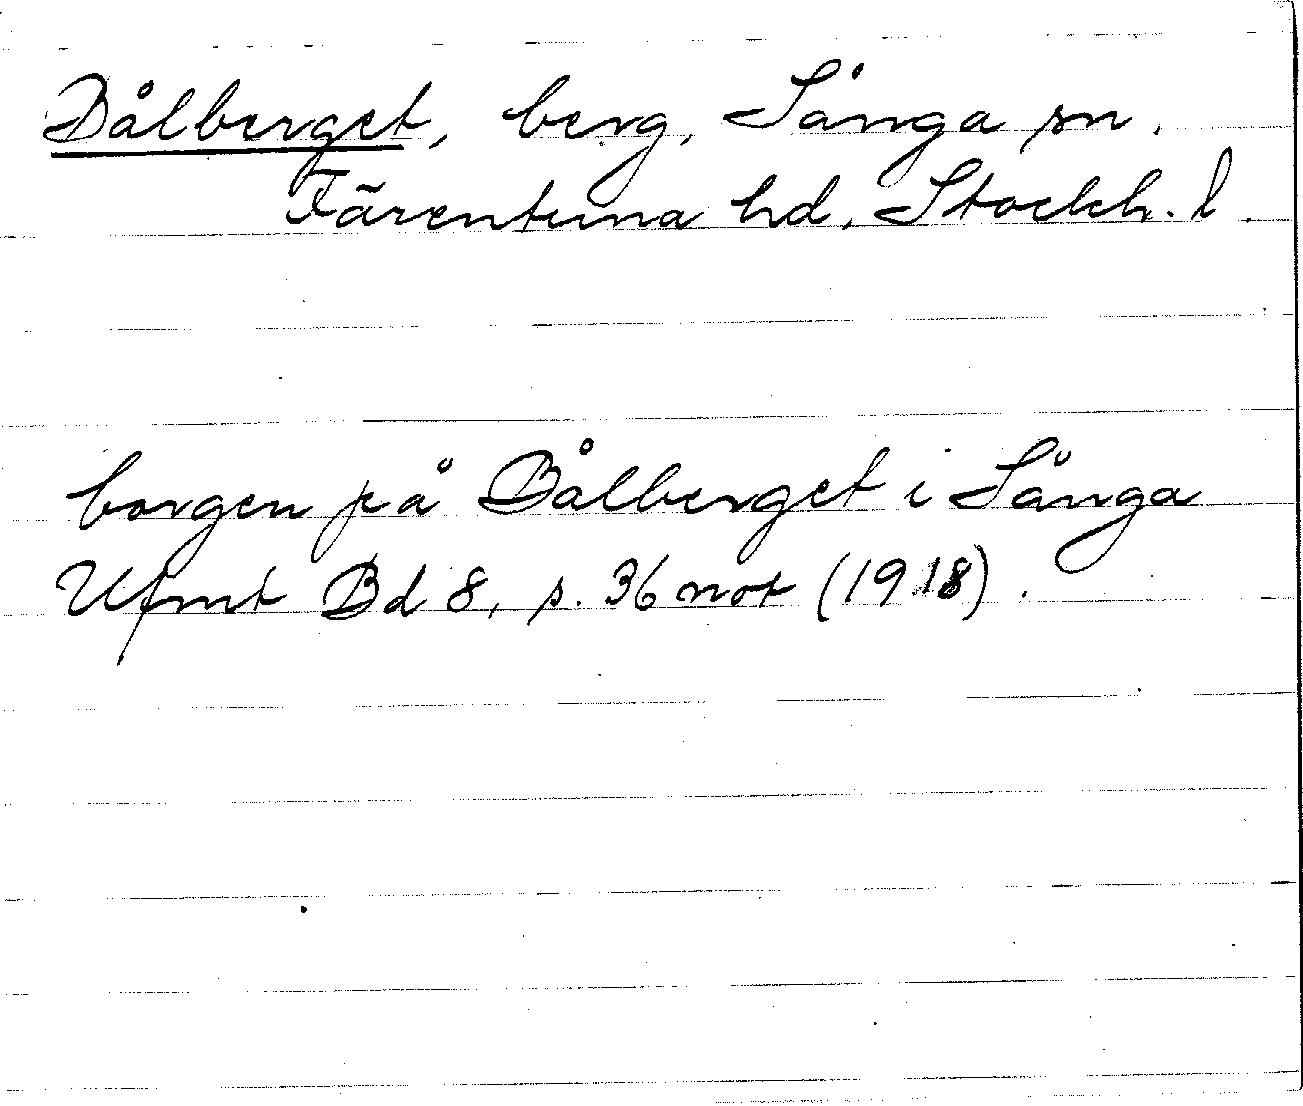 Bålberget, berg, Sånga sn.
Färentuna hd, Stockh. l.
borgen på Bålberget i Sånga
Ufmt Bd 8, s. 36 not (1918).